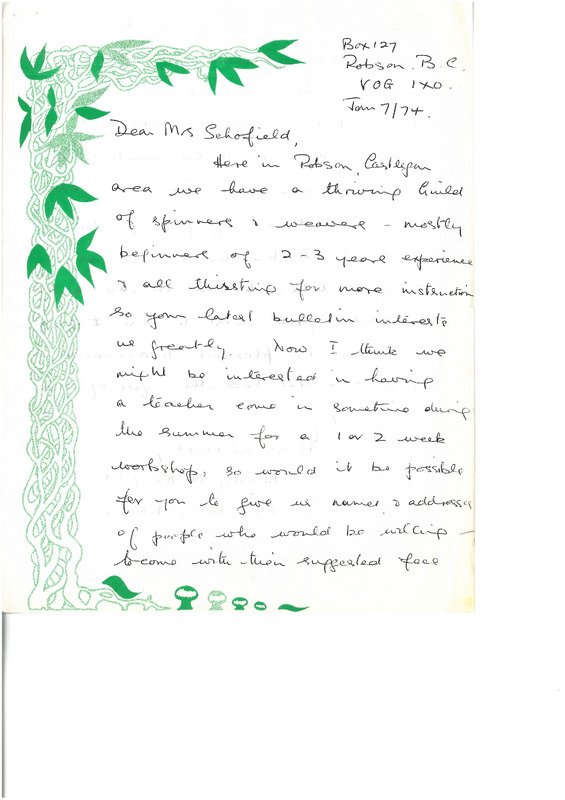 Box 127
Robson. B.C.
VOG 1XO.
Jan 7/74.
Dear Mrs Schofield,
Here in Robson, Castlegar
area we have a thriving Guild
of spinners & weavers - mostly
beginners of 2-3 years experience
& all thirsting for more instruction
so your latest bulletin interests
us greatly. Now I think we
might be interested in having
a teacher come in sometime during
the summer for a 1 or 2 week
workshop, so would it be possible
for you to give us names & addresses
of people who would be willing -
to come with their suggested fees